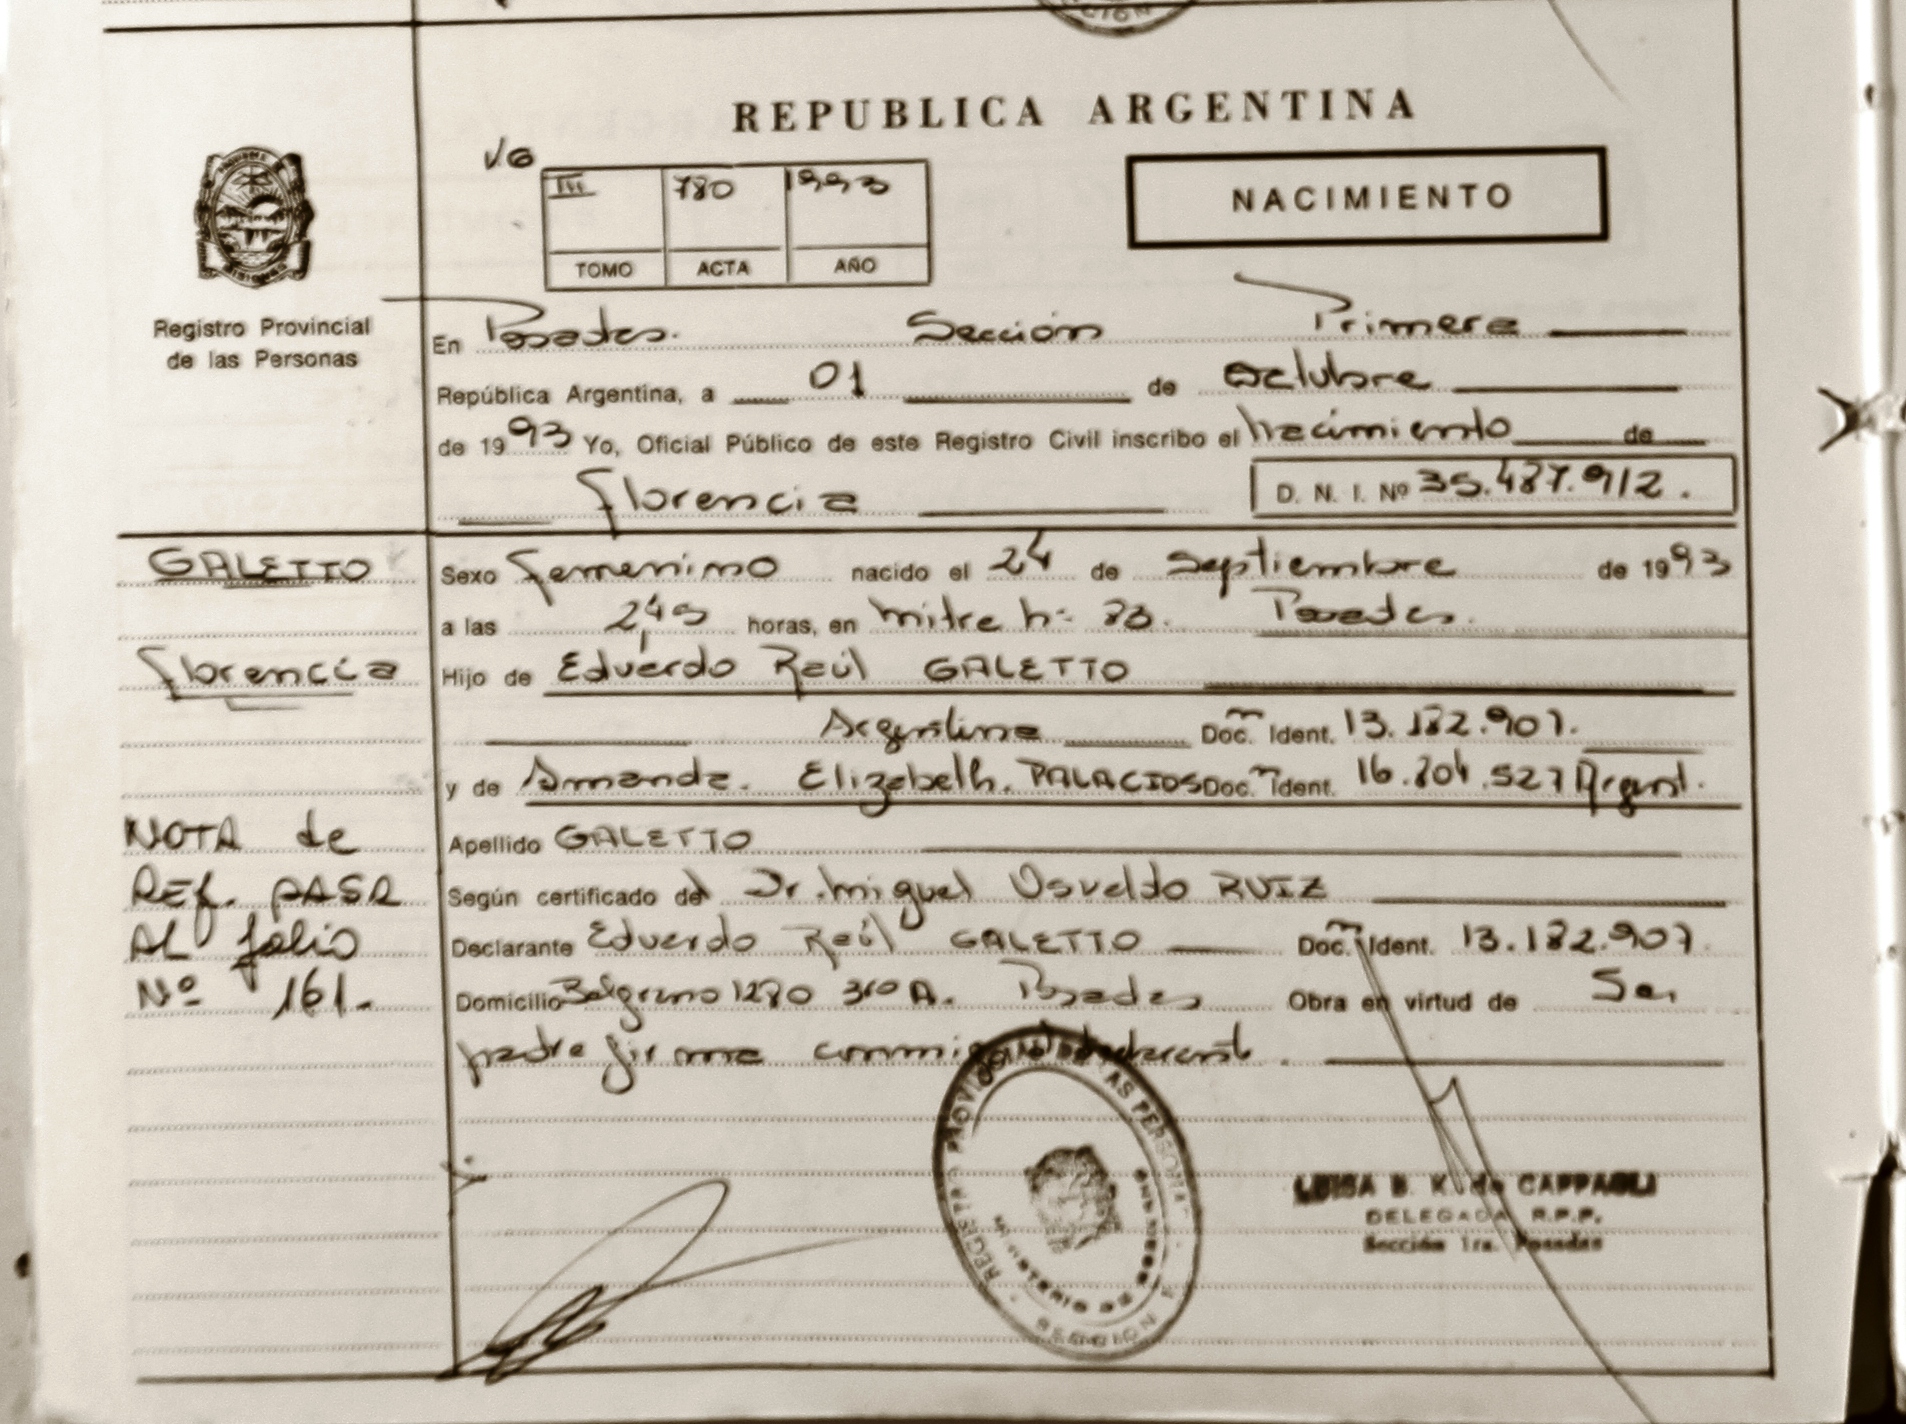 REPUBLICA ARGENTINA
VG
III 780 1993
TOMO ACTA AÑO
NACIMIENTO
Registro Provincial
de las Personas
En Posadas. Sección Primera
República Argentina, a 01 de Octubre
de 1993 Yo, Oficial Público de este Registro Civil inscribo el nacimiento de
Florencia D. N. I. Nº 35.487.912.
GALETTO
Sexo femenino nacido el 24 de Septiembre de 1993
a las horas, en mitre nº 83. Posadas.
Florencia
Hijo de Eduardo Raúl GALETTO
Argentina Doc. Ident. 13.182.907.
y de Amanda. Elizabeth. PALACIOS Doc. Ident. 16.804.527 Argent.
NOTA de
REf. PASA
AL folio
Nº 161.
Apellido GALETTO
Según certificado del Dr. Miguel Osvaldo RUIZ
Declarante Eduardo Raúl GALETTO Doc. Ident. 13.182.907.
Domicilio Belgrano 1280 3º A. Posadas Obra en virtud de Ser
padre firma conmigo declarante.
LUISA B. K. de CAPPAGLI
DELEGADA R.P.P.
Sección 1ra. Posadas